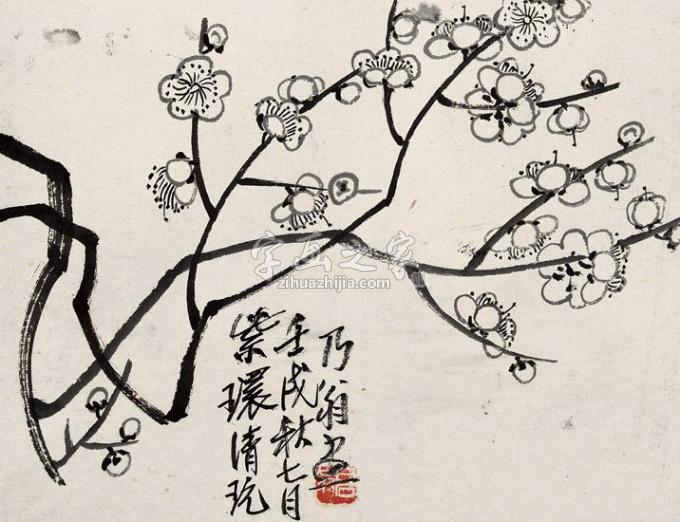 字画之家
zihuazhijia.com
紫環清玩
壬戌秋七月
乃翁